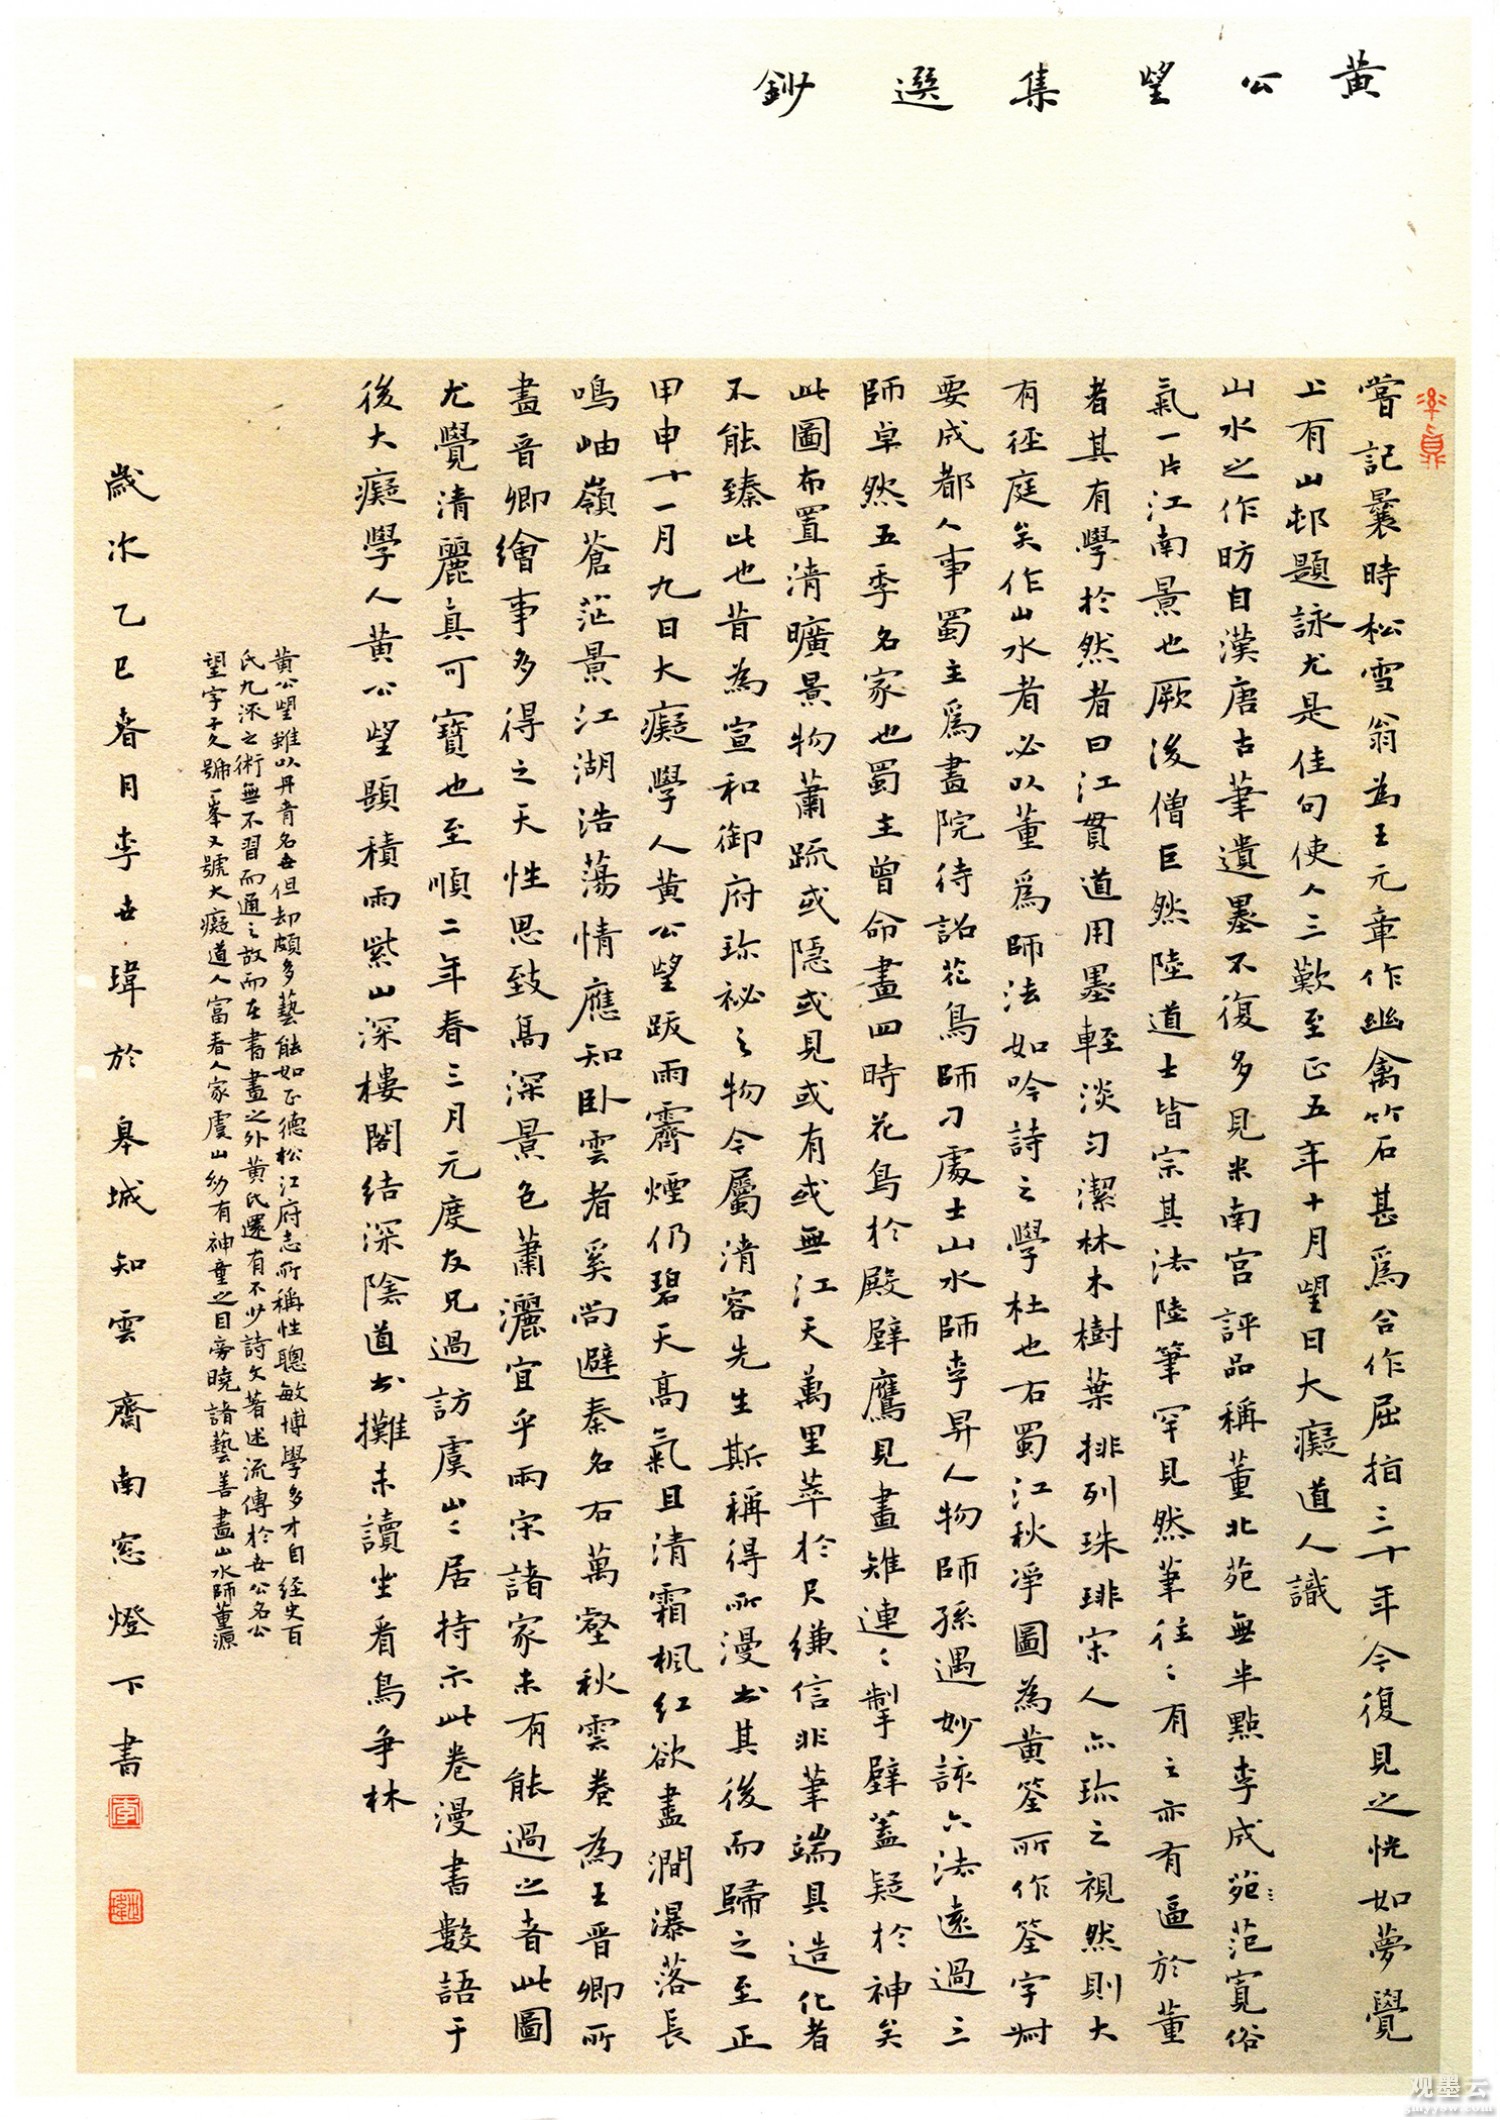 黄公望集選鈔
嘗記曩時松雪翁為王元章作幽禽竹石甚爲合作屈指三十年今復見之恍如夢覺
上有山邨題詠尤是佳句使人三歎至正五年十月望日大癡道人識
山水之作昉自漢唐古筆遺墨不復多見米南宮評品稱董北苑無半點李成范寬俗
氣一片江南景也厥後僧巨然陸道士皆宗其法陸筆罕見然筆往往有之亦有逼於董
者其有學於然者曰江貫道用墨輕淡勻潔林木樹葉排列珠琲宋人亦珍之視然則大
有徑庭矣作山水者必以董爲師法如吟詩之學杜也右蜀江秋淨圖為黄筌所作筌字
要成都人事蜀主爲畫院待詔花鳥師刁處士山水師李昇人物師孫遇妙該六法遠過三
師卓然五季名家也蜀主曾命畫四時花鳥於殿壁鷹見畫雉連連掣壁蓋疑於神矣
此圖布置清曠景物蕭疏或隱或見或有或無江天萬里萃於尺縑信非筆端具造化者
不能臻此也昔為宣和御府珍祕之物今屬清容先生斯稱得所漫書其後而歸之至正
甲申十一月九日大癡學人黄公望跋雨霽煙仍碧天高氣且清霜楓紅欲盡澗瀑落長
鳴岫嶺蒼茫景江湖浩蕩情應知卧雲者奚尚避秦名右萬壑秋雲卷為王晉卿所
畫晉卿繪事多得之天性思致高深景色蕭灑宜乎兩宋諸家未有能過之者此圖
尤覺清麗真可寶也至順二年春三月元度友兄過訪虞山山居持示此卷漫書數語于
後大癡學人黄公望顕積雨紫山深樓閣結深陰道書攤未讀坐看鳥爭林
黄公望雖以丹青名世但却頗多藝能如正德松江府志所稱性聰敏博學多才自經史百
氏九流之術無不習而通之故而在書畫之外黄氏還有不少詩文著述流傳於世公名公
望字子久號一峯又號大癡道人富春人家虞山幼有神童之目旁曉諸藝善畫山水師董源
歲次乙巳春月李世瑋於皋城知雲齋南窓燈下書
观墨云
gmyyow.com